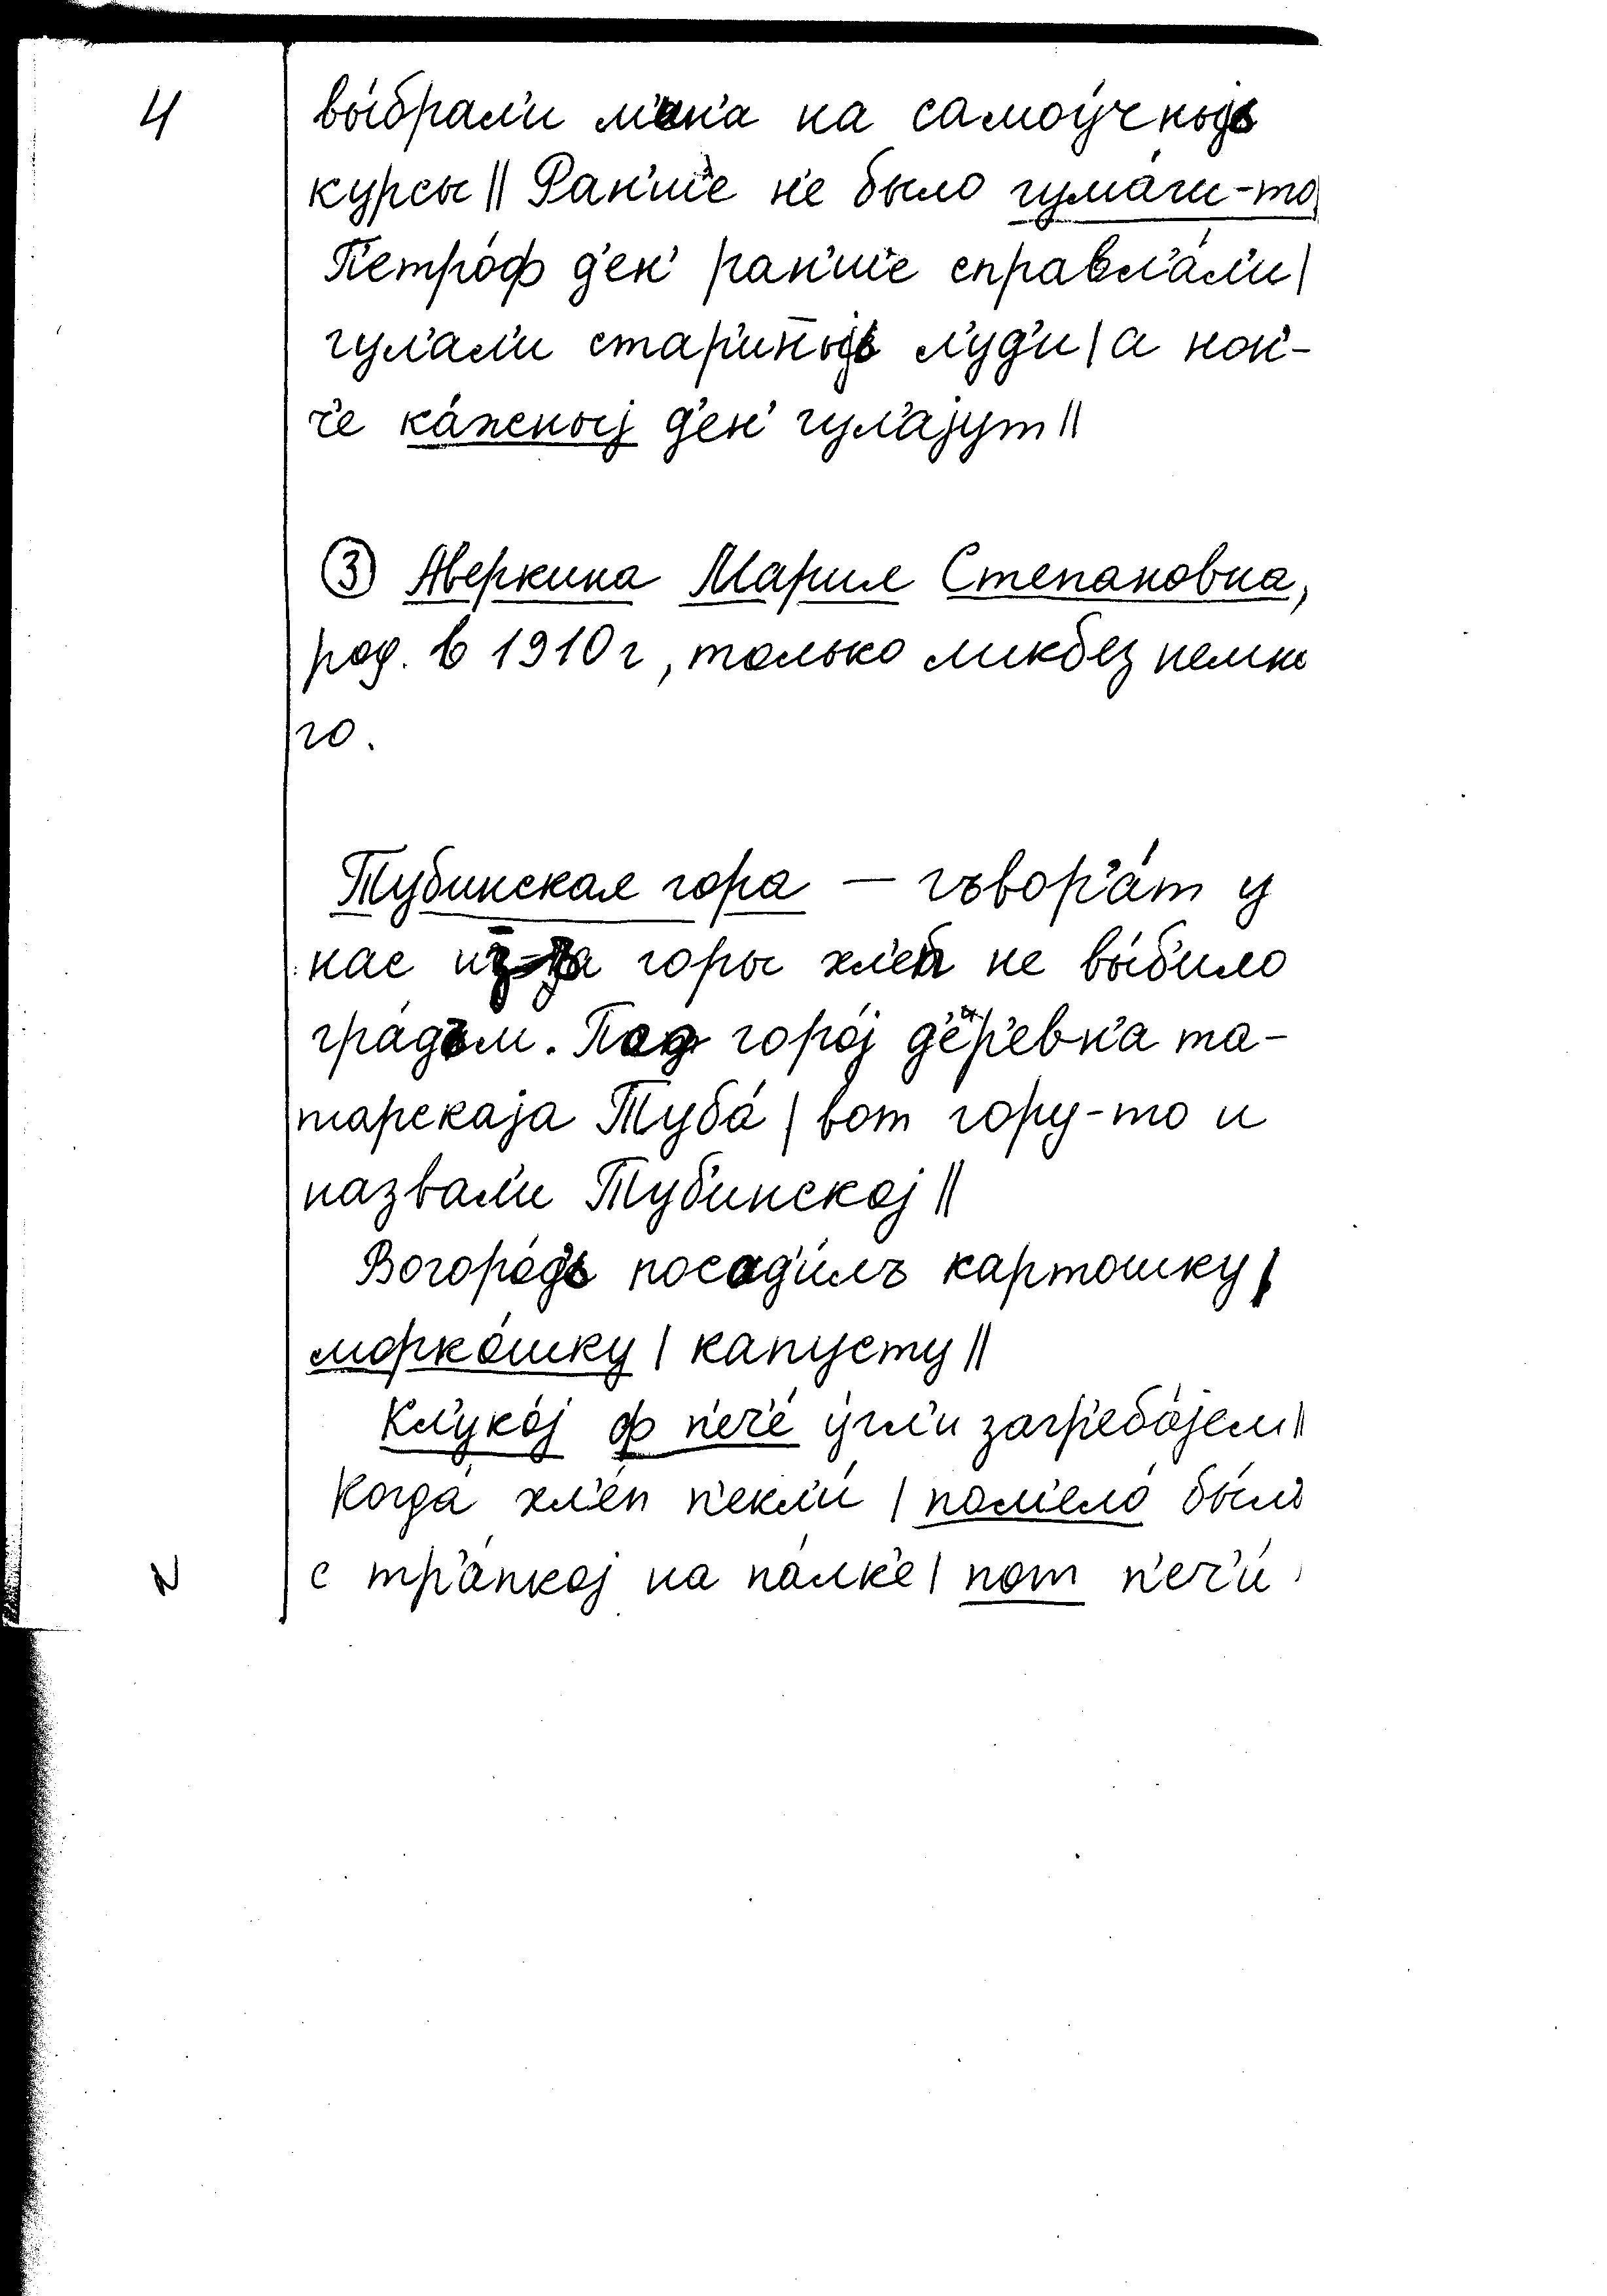 4
вы́брал'и м'ен'а на самоу́чныjь
курсы || Ран'ш'е н'е было гума́ги-то|
П'етро́ф д'ен' ран'ш'е справл'а́л'и |
гул'ал'и стар'ин̄ыjь л'уд'и | а нон'-
ч'е ка́жныj д'ен' гул'аjут ||
③ Аверкина Мария Степановна,
род. в 1910 г, только ликбез немно
го.
Тубинская гора — гъвор'а́т у
нас из-за горы хл'еп не вы́б'ило
гра́дъм. Под горо́j д'ер'евн'а та-
тарскаjа Туба́ | вот гору-то и
назвал'и Туб'инскоj ||
Вогоро́д'ь посад'и́лъ картошку |
морко́шку | капусту ||
Кл'уко́j ф п'еч'е́ у́гл'и загр'еба́jем ||
Когда́ хл'е́п п'екл'и́ | пом'ело́ бы́ло
с тр'а́пкоj на па́лк'е | пот п'еч'и́
N